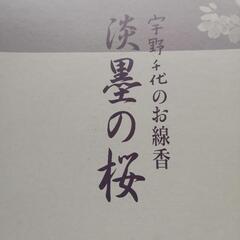 宇野千代のお線香
淡墨の桜